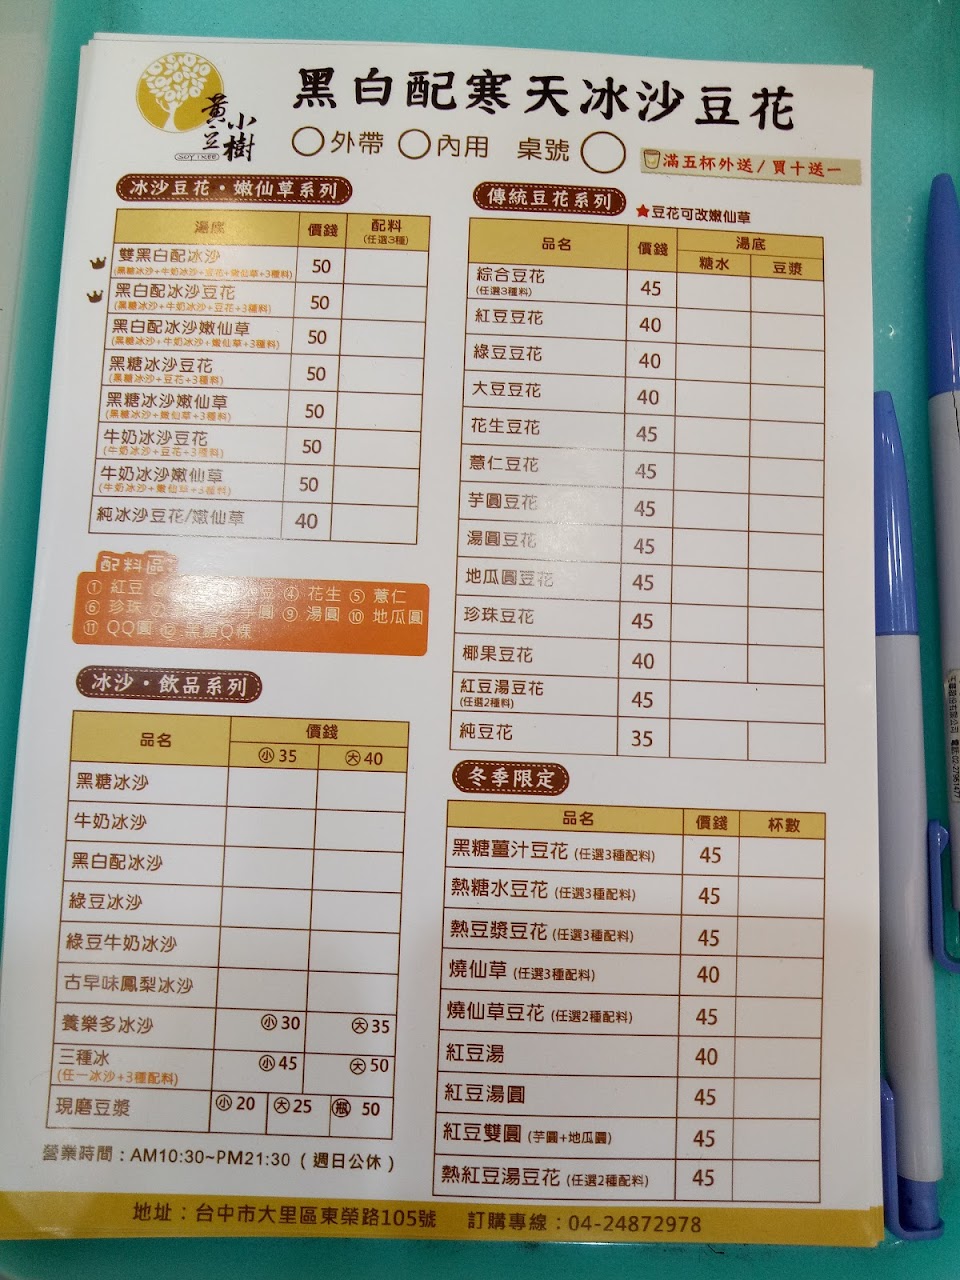 黃豆小樹
SOYTREE
黑白配寒天冰沙豆花
外帶 內用 桌號
滿五杯外送/買十送一
冰沙豆花・嫩仙草系列
湯底 價錢 配料
(任選3種)
雙黑白配冰沙 50
(黑糖冰沙+牛奶冰沙+豆花+嫩仙草+3種料)
黑白配冰沙豆花 50
(黑糖冰沙+牛奶冰沙+豆花+3種料)
黑白配冰沙嫩仙草 50
(黑糖冰沙+牛奶冰沙+嫩仙草+3種料)
黑糖冰沙豆花 50
(黑糖冰沙+豆花+3種料)
黑糖冰沙嫩仙草 50
(黑糖冰沙+嫩仙草+3種料)
牛奶冰沙豆花 50
(牛奶冰沙+豆花+3種料)
牛奶冰沙嫩仙草 50
(牛奶冰沙+嫩仙草+3種料)
純冰沙豆花/嫩仙草 40
配料區
① 紅豆 ② 豆 ④ 花生 ⑤ 薏仁
⑥ 珍珠 ⑦ 圓 ⑨ 湯圓 ⑩ 地瓜圓
⑪ QQ圓 ⑫ 黑糖Q粿
冰沙・飲品系列
品名 價錢
小35 大40
黑糖冰沙
牛奶冰沙
黑白配冰沙
綠豆冰沙
綠豆牛奶冰沙
古早味鳳梨冰沙
養樂多冰沙 小30 大35
三種冰 小45 大50
(任一冰沙+3種配料)
現磨豆漿 小20 大25 瓶 50
營業時間：AM10:30~PM21:30（週日公休）
傳統豆花系列 ★豆花可改嫩仙草
品名 價錢 湯底
糖水 豆漿
綜合豆花 45
(任選3種料)
紅豆豆花 40
綠豆豆花 40
大豆豆花 40
花生豆花 45
薏仁豆花 45
芋圓豆花 45
湯圓豆花 45
地瓜圓豆花 45
珍珠豆花 45
椰果豆花 40
紅豆湯豆花 45
(任選2種料)
純豆花 35
冬季限定
品名 價錢 杯數
黑糖薑汁豆花 (任選3種配料) 45
熱糖水豆花 (任選3種配料) 45
熱豆漿豆花 (任選3種配料) 45
燒仙草 (任選3種配料) 40
燒仙草豆花 (任選2種配料) 45
紅豆湯 40
紅豆湯圓 45
紅豆雙圓 (芋圓+地瓜圓) 45
熱紅豆湯豆花 (任選2種配料) 45
地址：台中市大里區東榮路105號 訂購專線：04-24872978